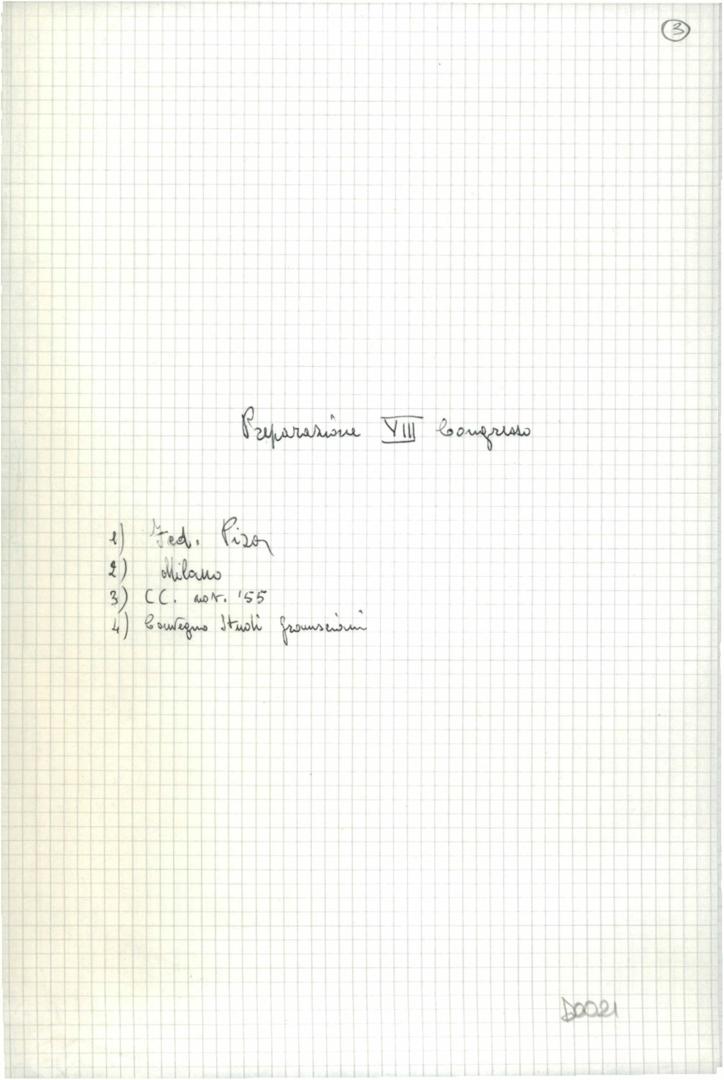 3
Preparazione VIII Congresso
1) Fed. Pisa
2) Milano
3) CC. nov. '55
4) Convegno Studi gramsciani
D0021